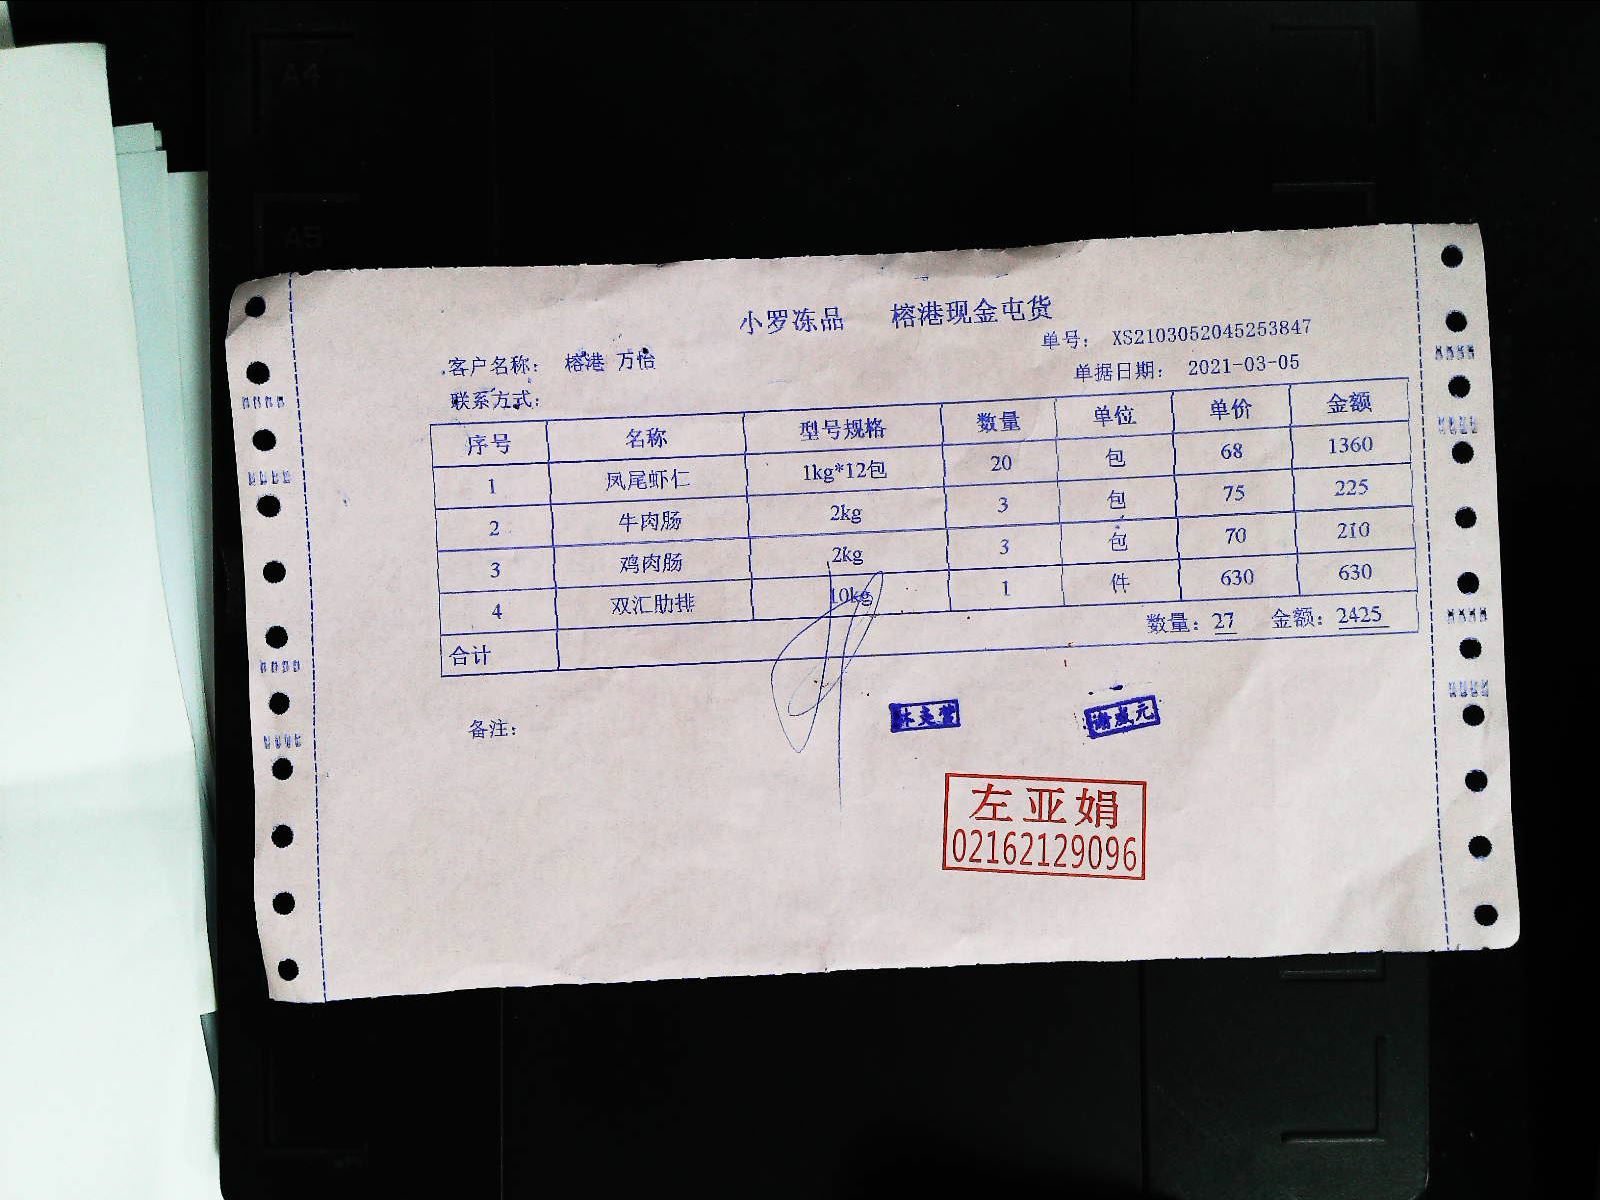 A4
A5
小罗冻品 榕港现金屯货
单号： XS2103052045253847
客户名称： 榕港 万怡
单据日期： 2021-03-05
联系方式：
序号 名称 型号规格 数量 单位 单价 金额
1 凤尾虾仁 1kg*12包 20 包 68 1360
2 牛肉肠 2kg 3 包 75 225
3 鸡肉肠 2kg 3 包 70 210
4 双汇肋排 10kg 1 件 630 630
合计 数量：27 金额：2425
备注：
左亚娟
02162129096